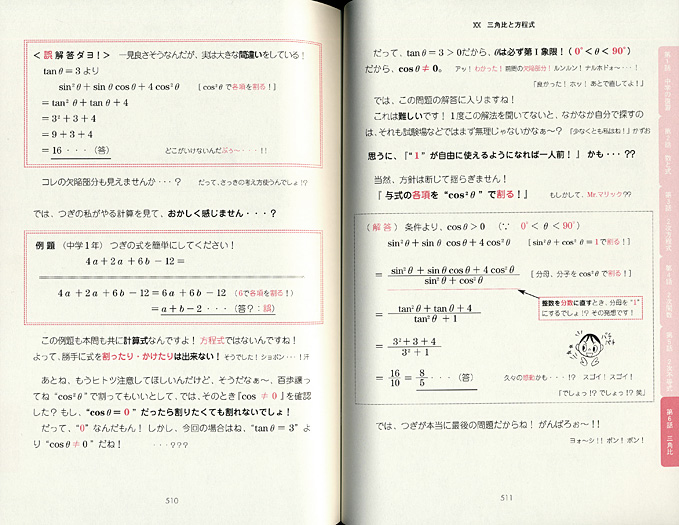 ＜誤解答ダヨ！＞ 一見良さそうなんだが、実は大きな間違いをしている！
tanθ＝3 より
sin²θ＋sinθcosθ＋4cos²θ ［cos²θで各項を割る！］
＝tan²θ＋tanθ＋4
＝3²＋3＋4
＝9＋3＋4
＝16・・・（答） どこがいけないんだぶぅ〜・・・！！
コレの欠陥部分も見えませんか・・・？ だって、さっきの考え方使うんでしょ!?
では、つぎの私がやる計算を見て、おかしく感じません・・・？
例題（中学1年）つぎの式を簡単にしてください！
4a＋2a＋6b－12＝
4a＋2a＋6b－12＝6a＋6b－12 （6で各項を割る！）
＝a＋b－2・・・（答？：誤）
この例題も本問も共に計算式なんですよ！ 方程式ではないんですね！
よって、勝手に式を割ったり・かけたりは出来ない！ そうでした！ショボン・・・！汗
あとね、もうヒトツ注意してほしいんだけど、そうだなぁ〜、百歩譲っ
てね“cos²θ”で割ってもいいとして、では、そのとき『cosθ≠0』を確認
した？ もし、“cosθ＝0”だったら割りたくても割れないでしょ！
だって、“0”なんだもん！ しかし、今回の場合はね、“tanθ＝3”よ
り“cosθ≠0”だね！ ・・・???
510
XX 三角比と方程式
だって、tanθ＝3＞0だから、θは必ず第Ⅰ象限！（0°＜θ＜90°）
だから、cosθ≠0。 アッ！わかった！前問の欠陥部分！ルンルン！ナルホドォ〜・・・！
「良かった！ホッ！あとで直してよ！」
では、この問題の解答に入りますね！
これは難しいです！ 1度この解法を聞いてないと、なかなか自分で探すの
は、それも試験場などではまず無理じゃないかなぁ〜？「少なくとも私はね！」かずお
思うに、『“1”が自由に使えるようになれば一人前！』かも・・・??
当然、方針は断じて揺らぎません！
『与式の各項を“cos²θ”で割る！』 もしかして、Mr.マリック??
（解答） 条件より、cosθ＞0 （∵ 0°＜θ＜90°）
sin²θ＋sinθcosθ＋4cos²θ ［sin²θ＋cos²θ＝1で割る！］
＝(sin²θ＋sinθcosθ＋4cos²θ)/(sin²θ＋cos²θ) ［分母、分子をcos²θで割る！］
整数を分数に直すとき、分母を“1”
にするでしょ!? その発想です！
＝(tan²θ＋tanθ＋4)/(tan²θ＋1)
＝(3²＋3＋4)/(3²＋1)
＝16/10＝8/5・・・（答） 久々の感動かも・・・!? スゴイ！スゴイ！
「でしょっ!? でしょっ!? 笑」
では、つぎが本当に最後の問題だからね！ がんばろぉ〜！！
ヨォ〜シ！！ポン！ポン！
511
第1話 中学の復習
第2話 数と式
第3話 2次方程式
第4話 2次関数
第5話 2次不等式
第6話 三角比